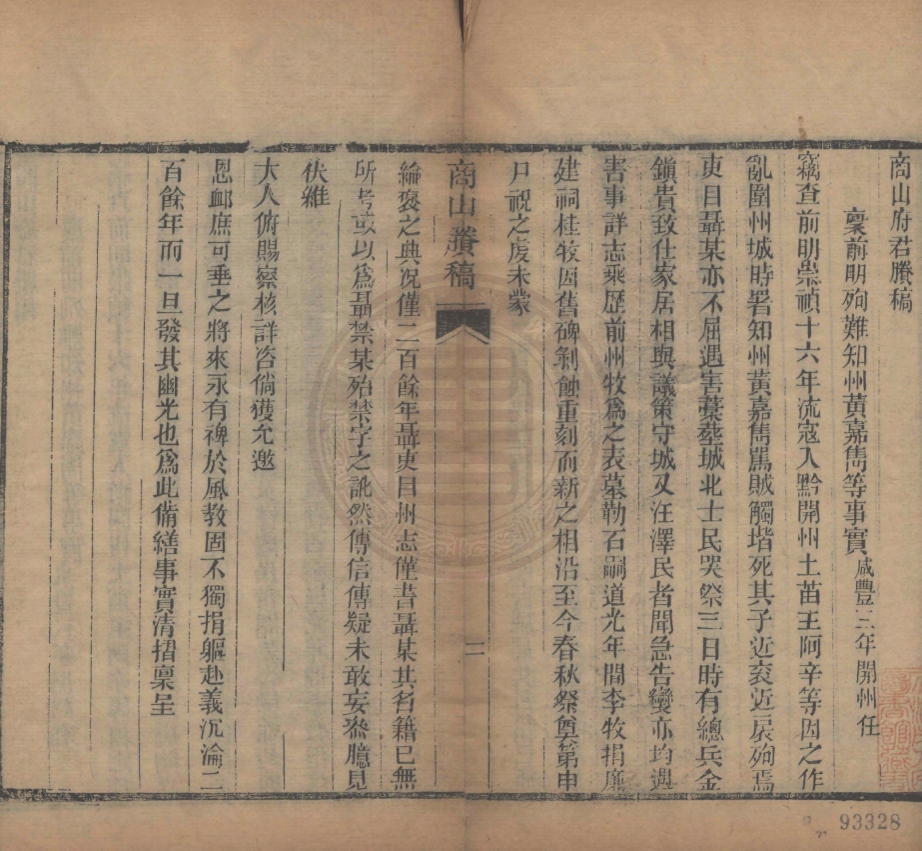 商山府君賸稿
稟前明殉難知州黃嘉雋等事實咸豐三年開州任
竊查前明崇禎十六年流寇入黔開州土苗王阿辛等因之作
亂圍州城時署知州黃嘉雋罵賊觸堦死其子近袞近扆殉焉
吏目聶某亦不屈遇害藁塟城北士民哭祭三日時有總兵金
鎮貴致仕家居相與議策守城又汪澤民者聞急告變亦均遇
害事詳志乘歷前州牧爲之表墓勒石嗣道光年間李牧捐廉
建祠桂牧因舊碑剝蝕重刻而新之相沿至今春秋祭奠第申
尸祝之虔未蒙
商山賸稿
二
綸褒之典况僅二百餘年聶吏目州志僅書聶某其名籍已無
所考或以爲聶禁某殆禁字之訛然傳信傳疑未敢妄叅臆見
伏維
大人俯賜察核詳咨倘獲允邀
恩卹庶可垂之將來永有裨於風教固不獨捐軀赴義沉淪二
百餘年而一旦發其幽光也爲此備繕事實清摺稟呈
93328